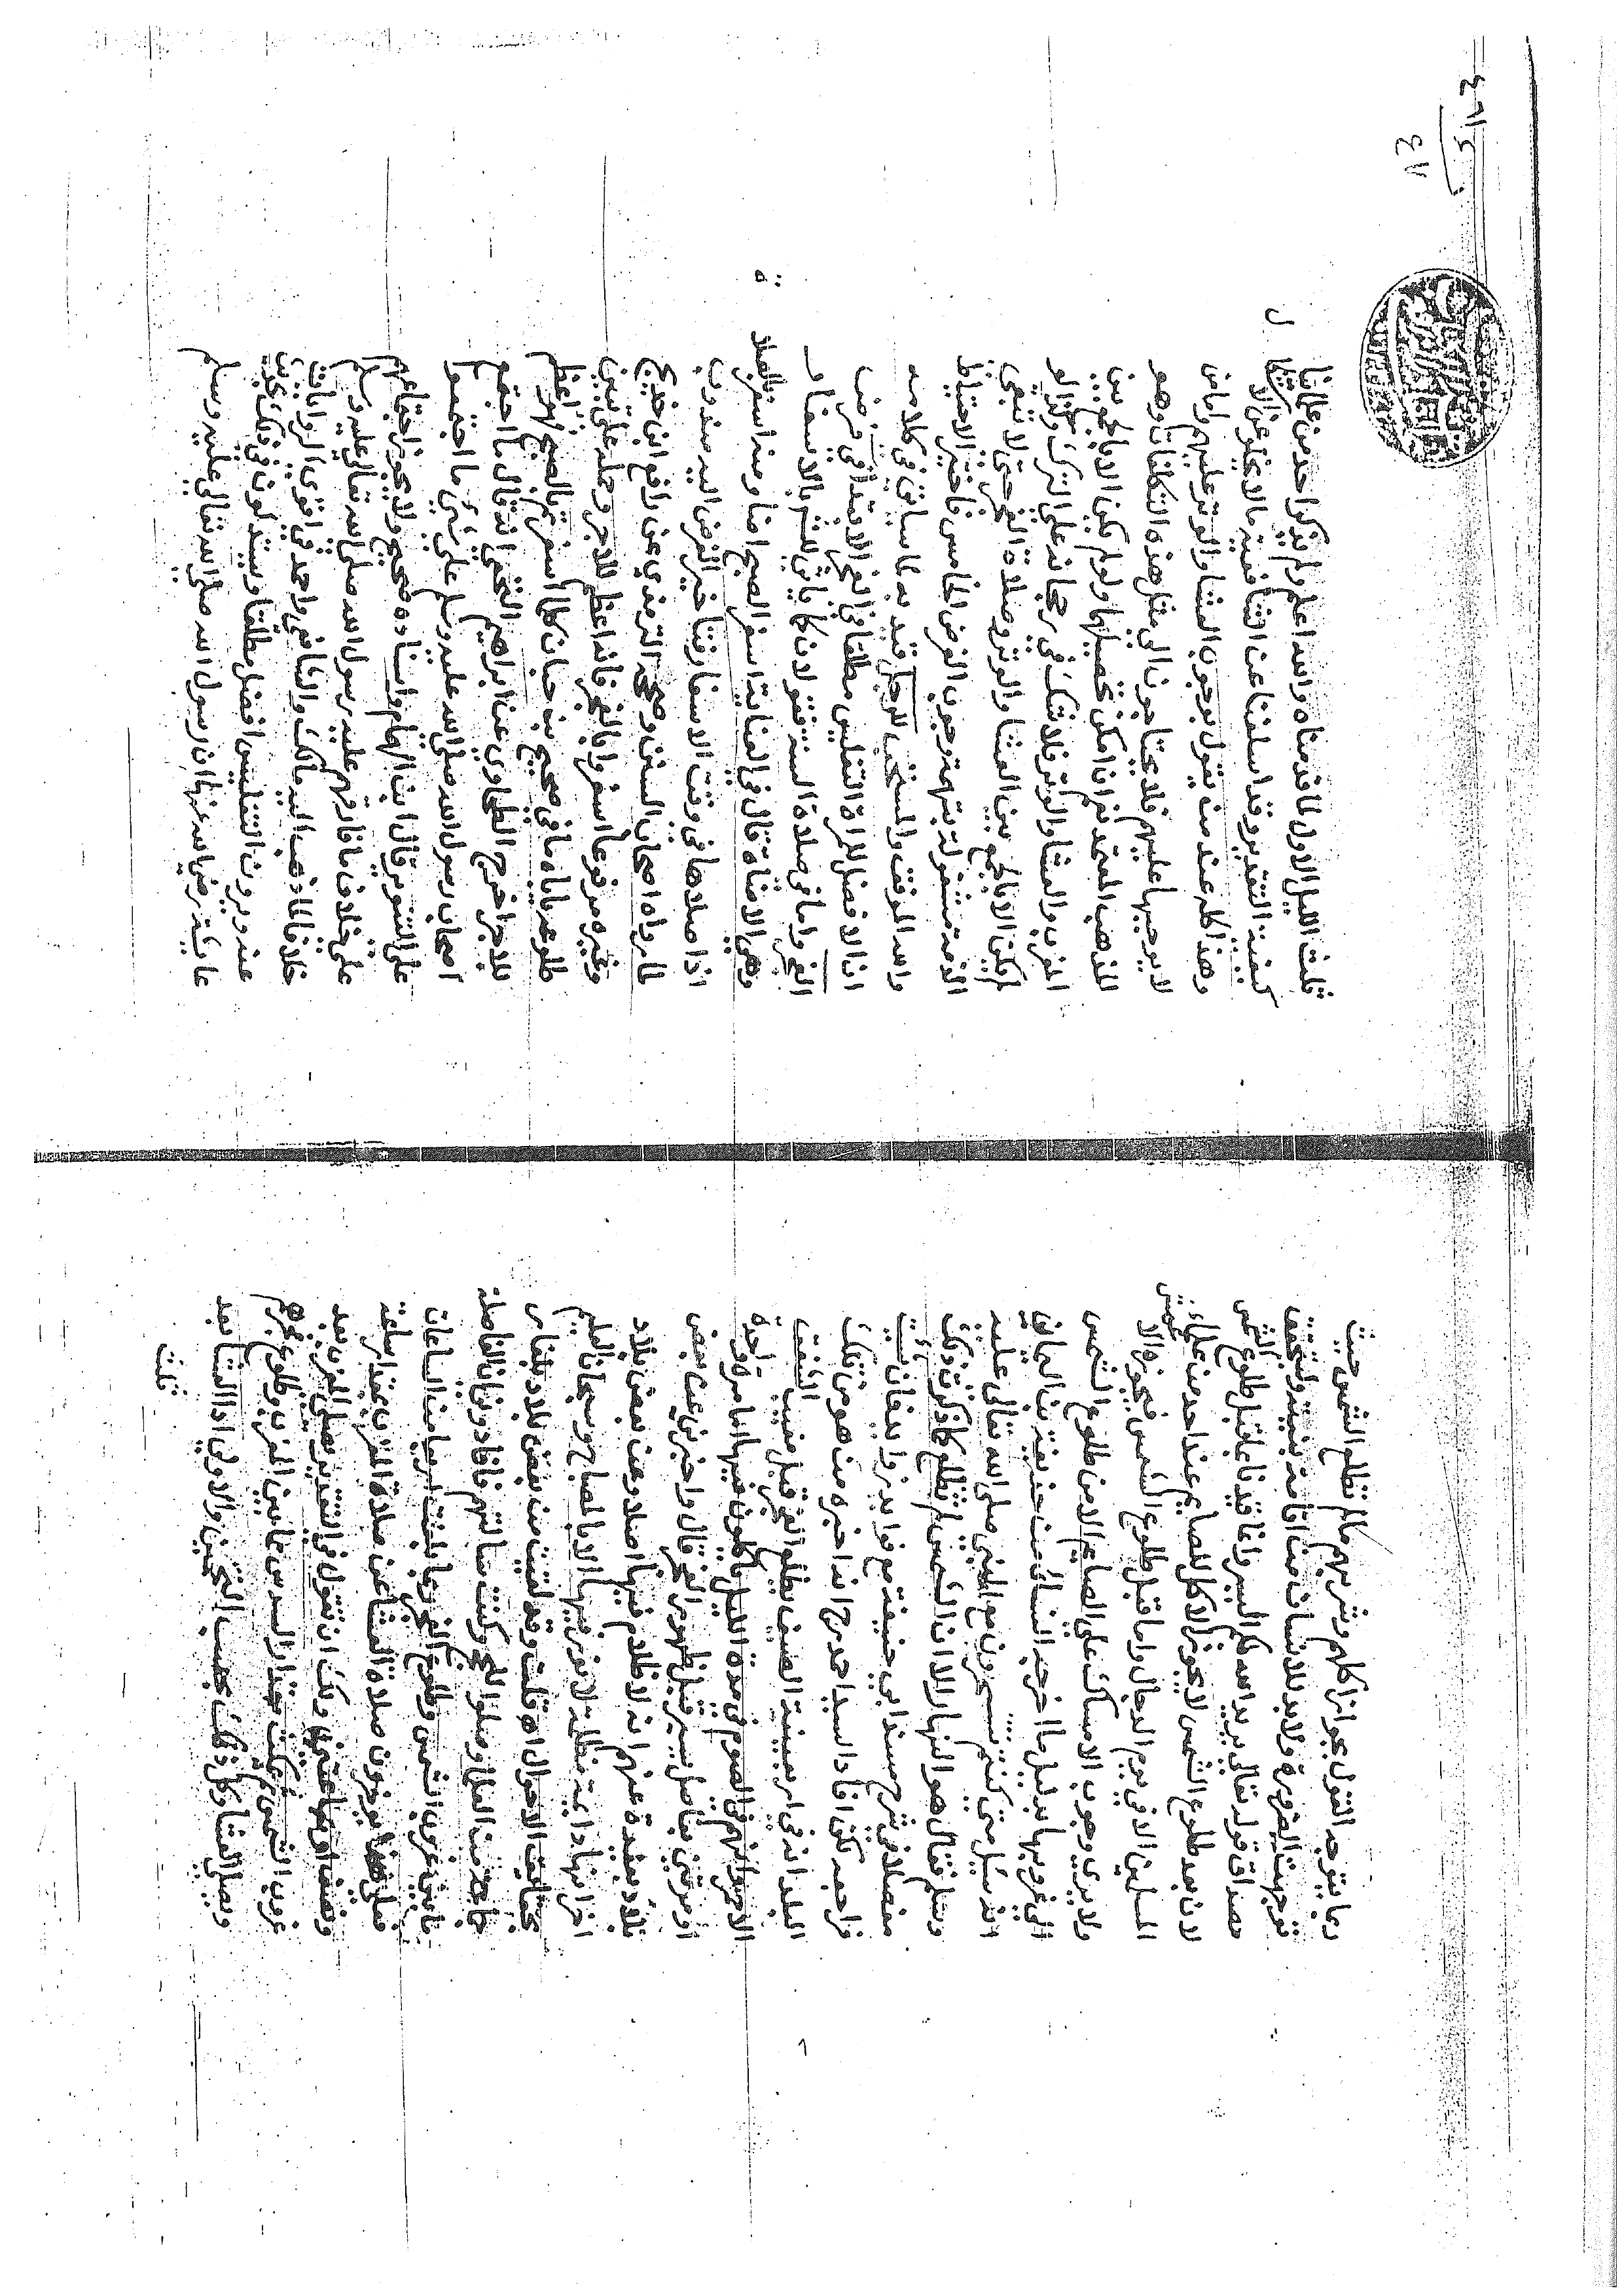 ربما يتوجه القول بجواز اكلهم وشربهم مالم تطلع الشمس حيث
توجهت الضرورة ولابد للانسان من اقامة بنيته ولتحقق
مصداق قوله تعالى يريد الله بكم اليسر وانما قيدنا بما قبل طلوع الشمس
لان بعد طلوع الشمس لا يجوز الاكل للصايم عند احد من علماء
المسلمين الا في يوم الدجال واما قبل طلوع الشمس فيجوز الا
عمش
ولا يرى وجوب الامساك على الصايم الا من طلوع الشمس
الى غروبها بدليل ما اخرجه النسائي من حذيفة بن اليمان
انه سئل متى كنتم تتسحرون مع النبي صلى الله تعالى عليه
وسلم فقال هو النهار الا ان الشمس لم تطلع كما ذكرت ذلك
مفصلا في شرح مسند ابي حنيفة مع فوايد زوايد فان ثبت
فراجعه لكن افاد السيد احمد مرجا انه اخبره من هو من تلك
البلد انه في اربعينية الصيف يطلع الفجر قبل مغيب الشفق
الاحمر وانهم في الصوم في مدة الليل ياكلون فيها اما مرة واحدة
او مرتين بفاصل يسير قبل ظهور الفجر قال واخبرني عن بعض
بلاد بعيدة عنهم انه لا ظلام فيها اصلا وعن بعض بلاد
اخر انها دايمة مظلمة لا يعرف فيها الا بالمصباح وسبحان العليم
بحقايق الاحوال اه قلت وقد لقيت من بعض بلاد بلغار
جماعة من الفضلا وصلوا للحج وكنت سالتهم فافادوني ان الفاصلة
مابين غروب الشمس وطلوع الفجر ربما بلغت اربعا من الساعات
فعلى هذا يؤخرون صلاة العشا عن صلاة المغرب بمقدار ساعة
ونصف او بساعتين ولك ان تقول في التقدير يصلى المغرب بعد
غروب الشمس ويمكث مقدار السدس مما بين المغرب وطلوع فجرهم
ويصلى العشا وكل ذلك بحسب التخمين والاولى اداا لعشا بعد
ثلث
ثلث الليل الاول لما قدمناه والله اعلم ولم يذكر احد من علمائنا
كيفية التقدير وقد اسلفنا عن الشافعية ما لا يخلو عن الاشكال
وهذا كله عند من يقول بوجوب العشا والوتر عليهم واما من
لا يوجبها عليهم فلا يحتاجون الى مثل هذه التكلفات وهو
المذهب المعتمد نعم ان امكن تحصيلها ولو لم يكن الا بالجمع بين
المغرب والعشا والوتر فلا شك في رجحانه على الترك وكذا لو
لم يمكن الا بالجمع بين العشا والوتر وصلاة الفجر حتى لا تبقى
الذمة مشغولة بتهمة وجوب الفرض الخامس فاختر الاحتياط
والله الموفق والمستحب للرجل قيد به لما سياتي في كلامه
ان الافضل للمراة التغليس مطلقا في الفجر الابتدا في فرض
الفجر واما في صلاة السنة فقولان كما ياتي للشم بالاسفار
وهي الاضاة قال في العناية اسفر الصبح اضا ومنه اسفر بالصلاة
اذا صلاها في وقت الاسفار وقتا خير الغرض اليه مندوب
لما رواه اصحاب السنن وصححه الترمذي عن رافع ابن خديج
وغيره مرفوعا اسفروا بالفجر فانه اعظم للاجر وحمله على تبين
طلوعه ياباه ما في صحيح بن حبان كلما اسفرتم بالصبح فهو اعظم
للاجر اخرج الطحاوي عن ابراهيم النخعي انه قال ما اجتمع
اصحاب رسول الله صلى الله عليه وسلم على شيء ما اجتمعوا
على التنوير قال ابن الهمام واسناده صحيح ولا يجوز اجتماعهم
على خلاف ما فارقهم عليه رسول الله صلى الله تعالى عليه وسلم
خلافا لما ذهب اليه مالك والشافعي واحمد في اقوى الروايات
عنه ويرون التغليس افضل مطلقا ويستدلون في ذلك بحديث
عايشة رضي الله عنها ان رسول الله صلى الله تعالى عليه وسلم